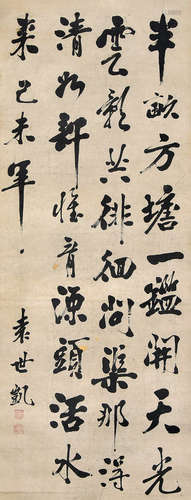 半畝方塘一鑑開天光
雲影共徘徊問渠那得
清如許惟有源頭活水
來己未年
袁世凱